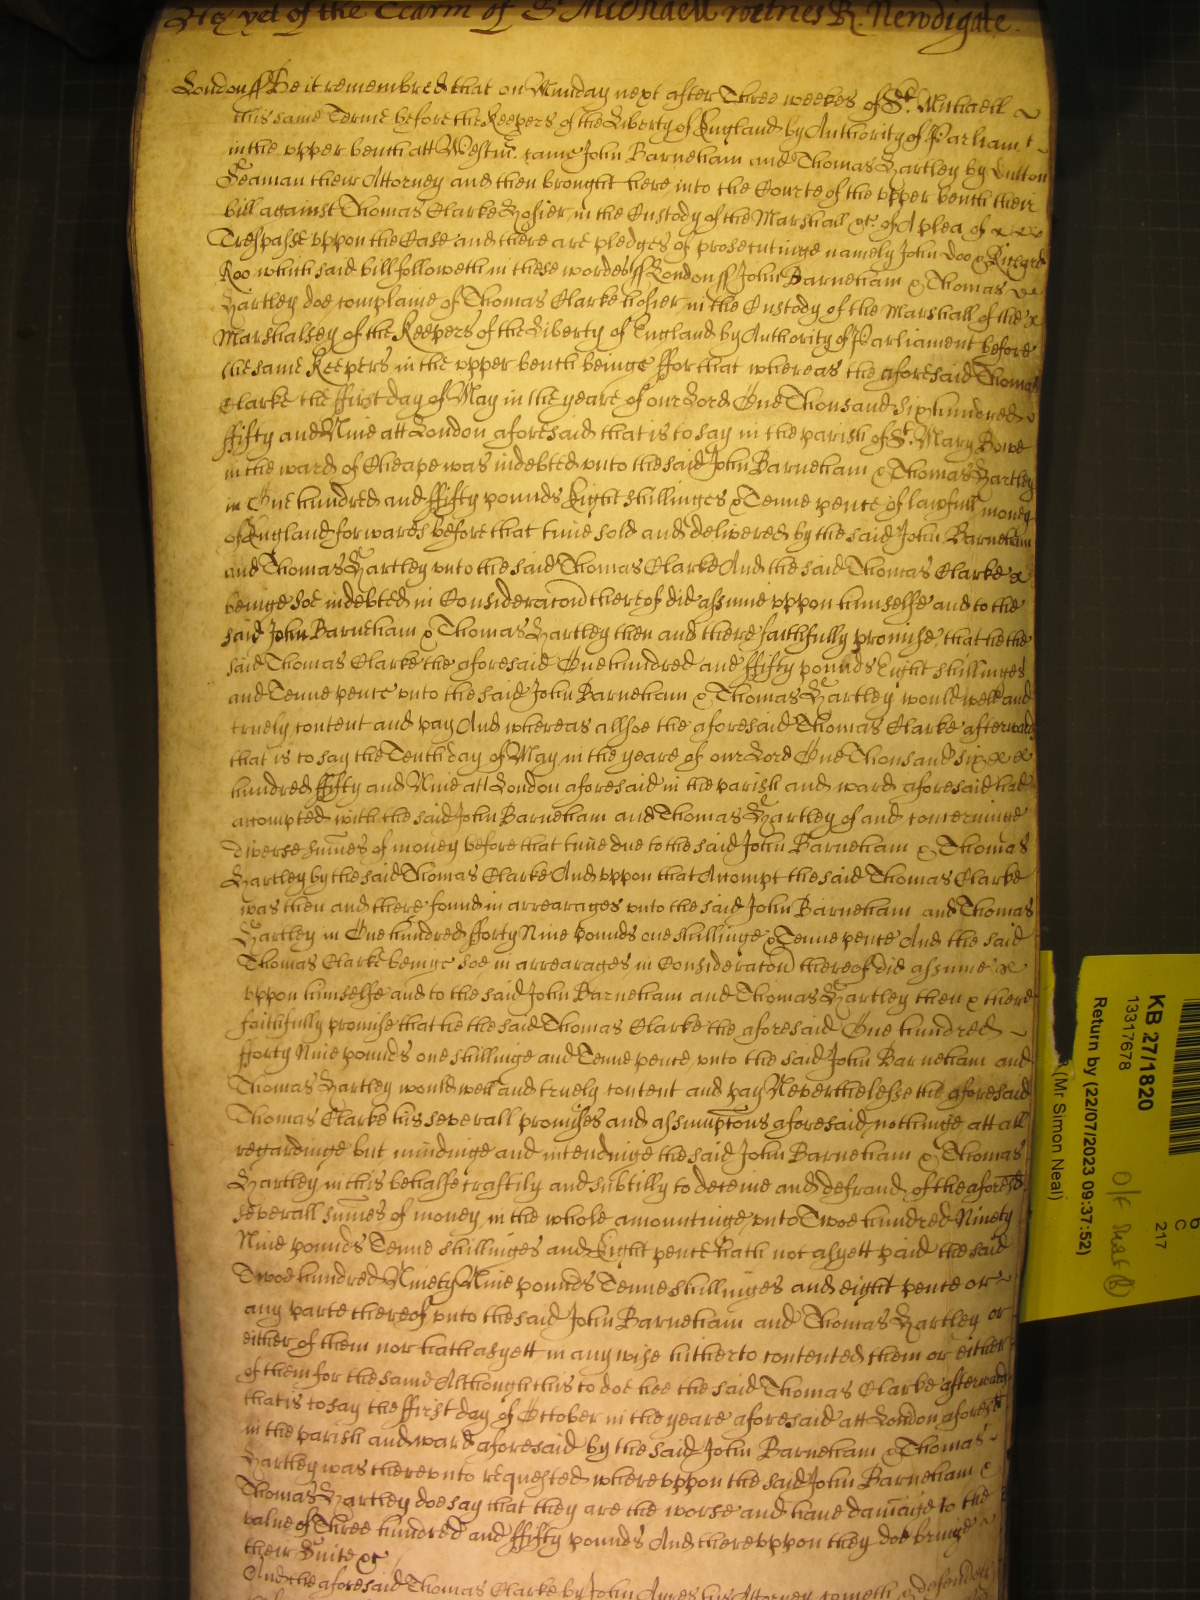 yet of the Tearm of St Michaell witnes R. Newdigate.
London ss Be it remembred that on Munday next after Three weekes of St. Michaell
this same Terme before the Keepers of the Liberty of England by Authority of Parliamt
in the upper bench att Westmr. came John Barneham and Thomas Hartley by Dutton
Seaman their Attorney and then brought here into the Courte of the upper bench their
bill against Thomas Clarke Hosier in the Custody of the Marshall &c. of A plea of
Trespasse uppon the Case and there are pledges of prosecutinge namely John Doo & Richard
Roo which said bill followeth in these wordes ss London ss John Barneham & Thomas
Hartley doe complaine of Thomas Clarke hosier in the Custody of the Marshall of the
Marshalsey of the Keepers of the Liberty of England by Authority of Parliament before
the same Keepers in the upper bench beinge ffor that whereas the aforesaid Thomas
Clarke the ffirst day of May in the yeare of our Lord One Thousand six hundred
ffifty and Nine att London aforesaid that is to say in the parish of St. Mary Bowe
in the ward of Cheape was indebted unto the said John Barneham & Thomas Hartley
in One hundred and ffifty pounds Eight shillinges & Tenne pence of lawfull money
of England for wares before that time sold and delivered by the said John Barneham
and Thomas Hartley unto the said Thomas Clarke And the said Thomas Clarke
beinge soe indebted in Consideracon thereof did assume uppon himselfe and to the
said John Barneham & Thomas Hartley then and there faithfully promise that he the
said Thomas Clarke the aforesaid One hundred and ffifty pounds Eight shillinges
and Tenne pence unto the said John Barneham & Thomas Hartley would well and
truely content and pay And whereas allsoe the aforesaid Thomas Clarke afterward
that is to say the Tenth day of May in the yeare of our Lord One Thousand six
hundred ffifty and Nine att London aforesaid in the parish and ward aforesaid had
accompted with the said John Barneham and Thomas Hartley of and concerninge
diverse summes of money before that time due to the said John Barneham & Thomas
Hartley by the said Thomas Clarke And uppon that Accompt the said Thomas Clarke
was then and there found in arrearages unto the said John Barneham and Thomas
Hartley in One hundred fforty Nine pounds one shillinge & Tenne pence And the said
Thomas Clarke beinge soe in arrearages in Consideracon thereof did assume
uppon himselfe and to the said John Barneham and Thomas Hartley then & there
faithfully promise that he the said Thomas Clarke the aforesaid One hundred
fforty Nine pounds one shillinge and Tenne pence unto the said John Barneham and
Thomas Hartley would well and truely content and pay Neverthelesse the aforesaid
Thomas Clarke his severall promises and assumptons aforesaid nothinge att all
regardinge but mindinge and intendinge the said John Barneham & Thomas
Hartley in this behalfe craftily and subtilly to deceive and defraud of the aforesd
severall summes of money in the whole amountinge unto Twoe hundred Ninety
Nine pounds Tenne shillinges and Eight pence hath not as yett paid the said
Twoe hundred Ninety Nine pounds Tenne shillinges and eight pence or
any parte thereof unto the said John Barneham and Thomas Hartley or
either of them nor hath as yett in any wise hitherto contented them or either
of them for the same Although this to doe hee the said Thomas Clarke afterward
that is to say the ffirst day of October in the yeare aforesaid att London aforesd
in the parish and ward aforesaid by the said John Barneham & Thomas
Hartley was thereunto requested whereuppon the said John Barneham &
Thomas Hartley doe say that they are the worse and have damage to the
value of Three hundred and ffifty pounds And thereuppon they doe bringe
their Suite &c
And the aforesaid Thomas Clarke by John Ayres his Attorney cometh & defendeth
KB 27/1820
13317678
Return by (22/07/2023 09:37:52)
(Mr Simon Neal)
C
217